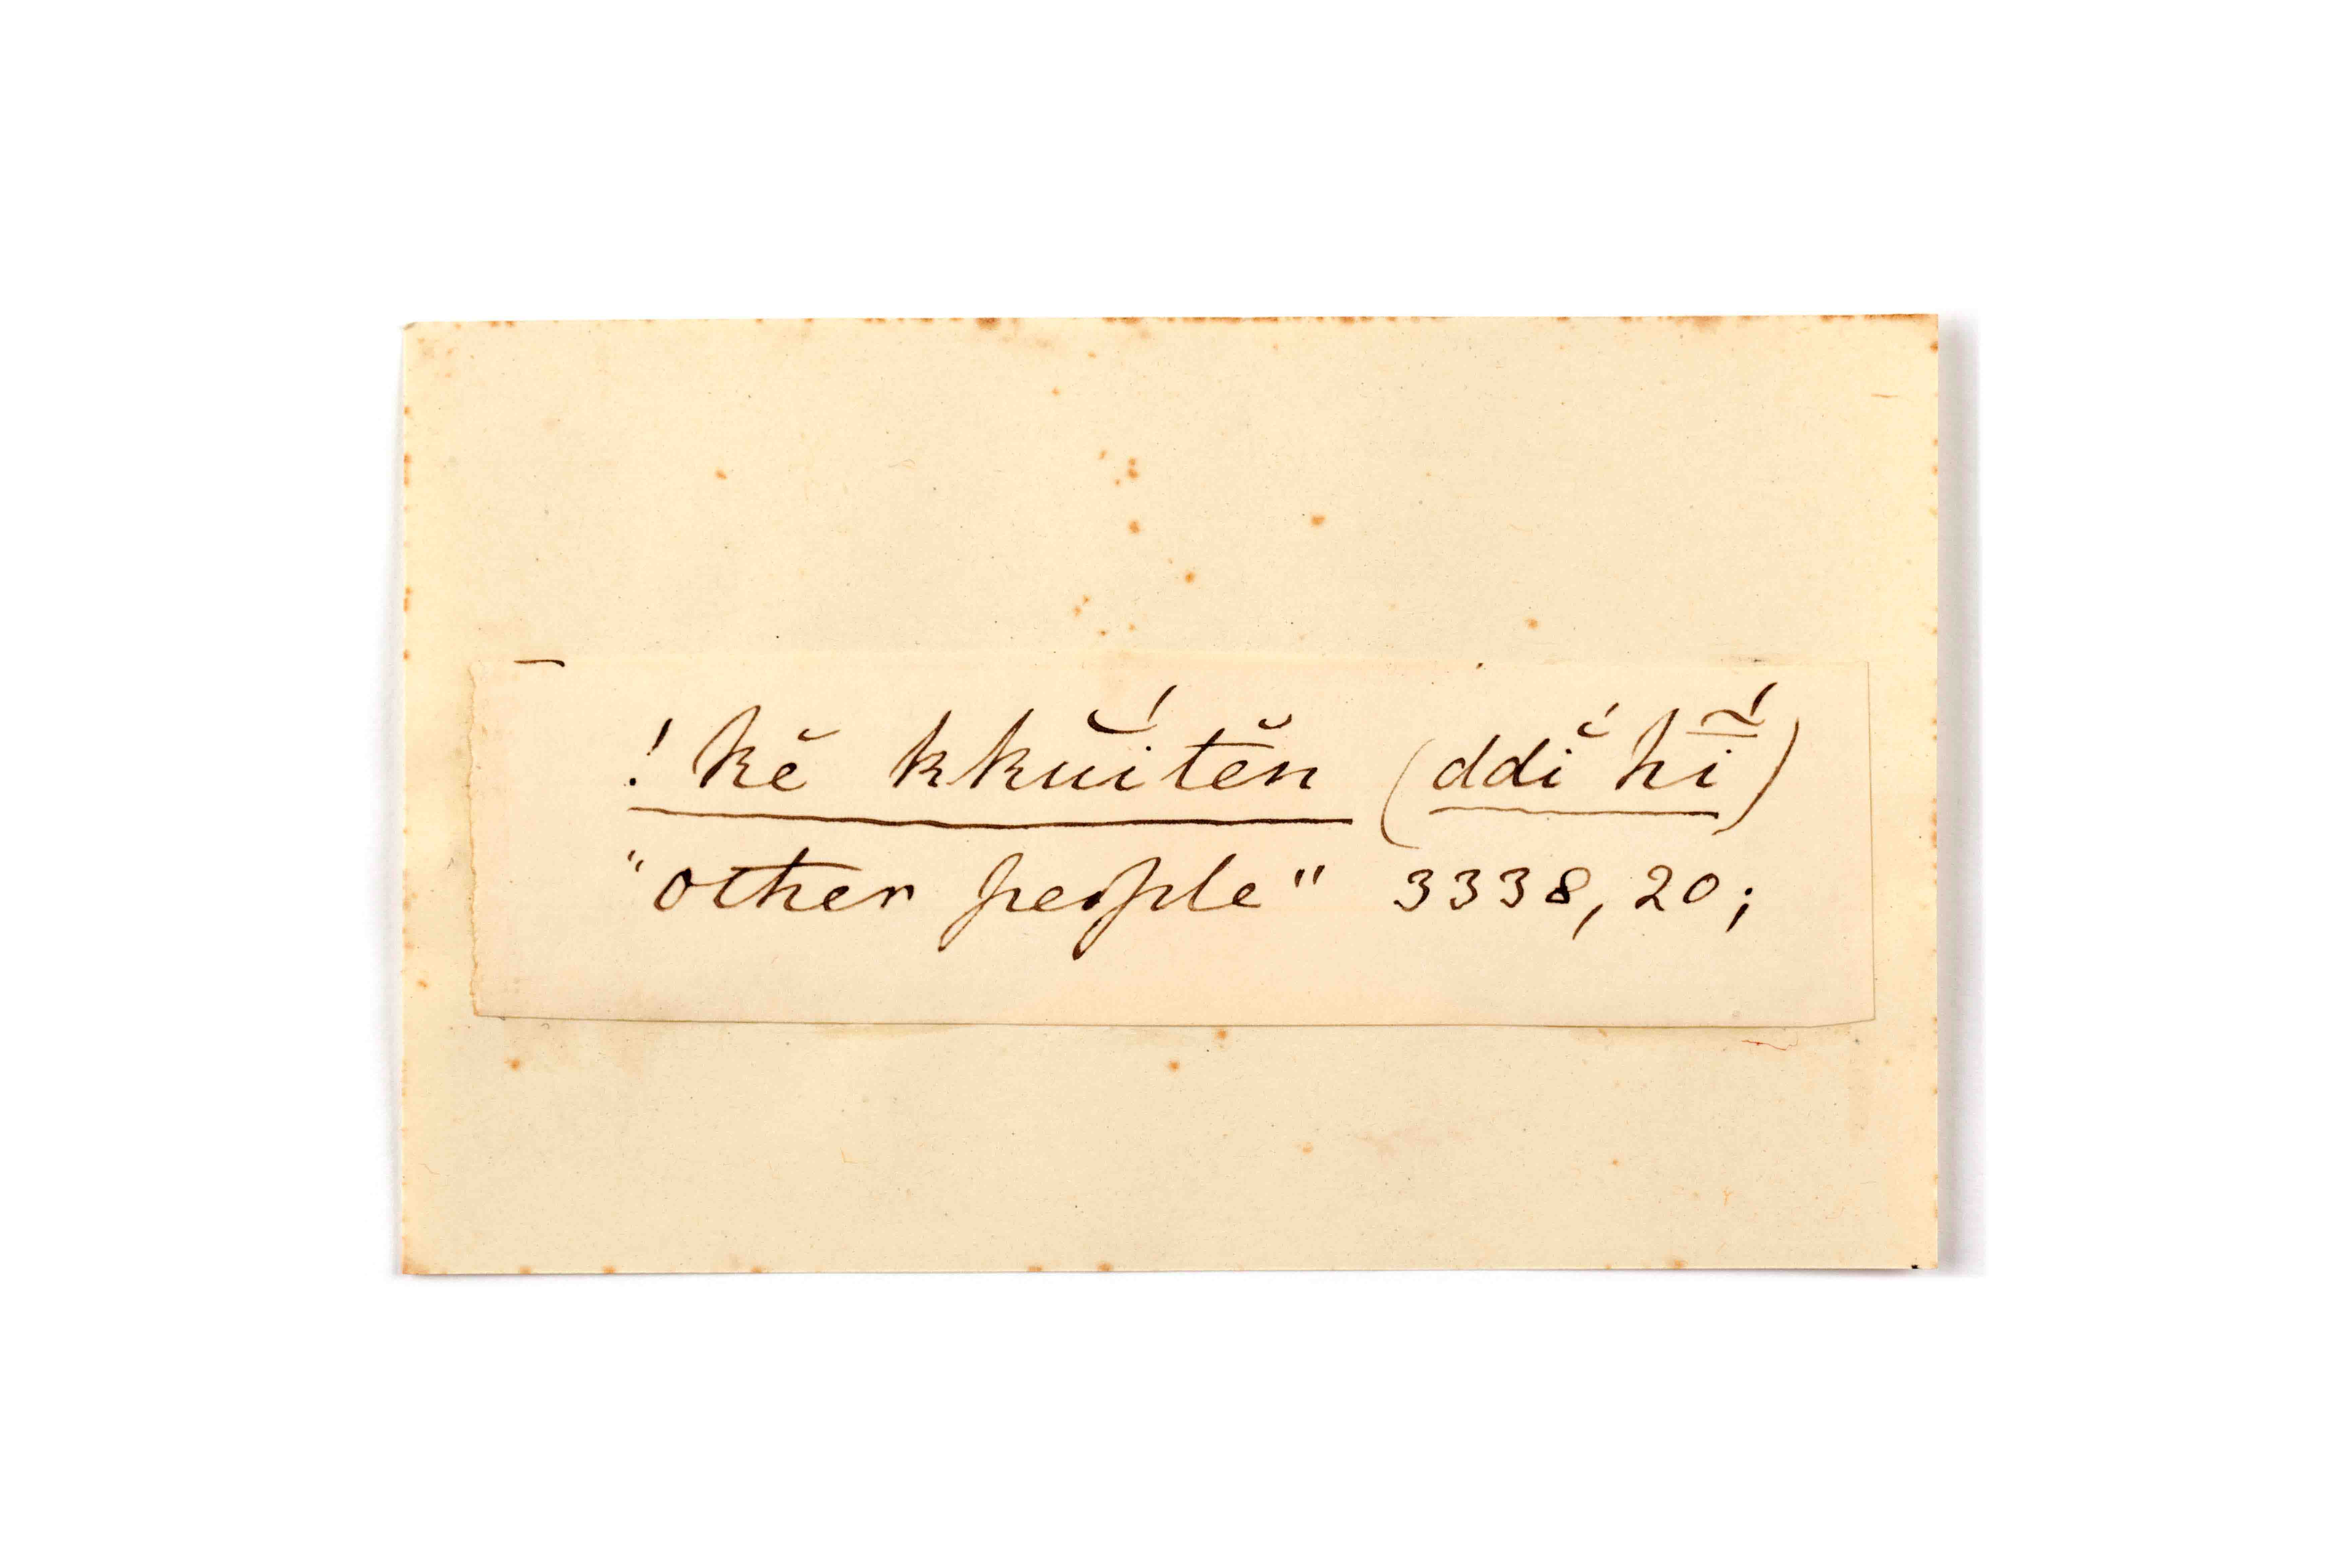 ! kĕ kkŭ́ĭtĕn (ddĭ́ hĩ̄́)
"other people" 3338, 20;